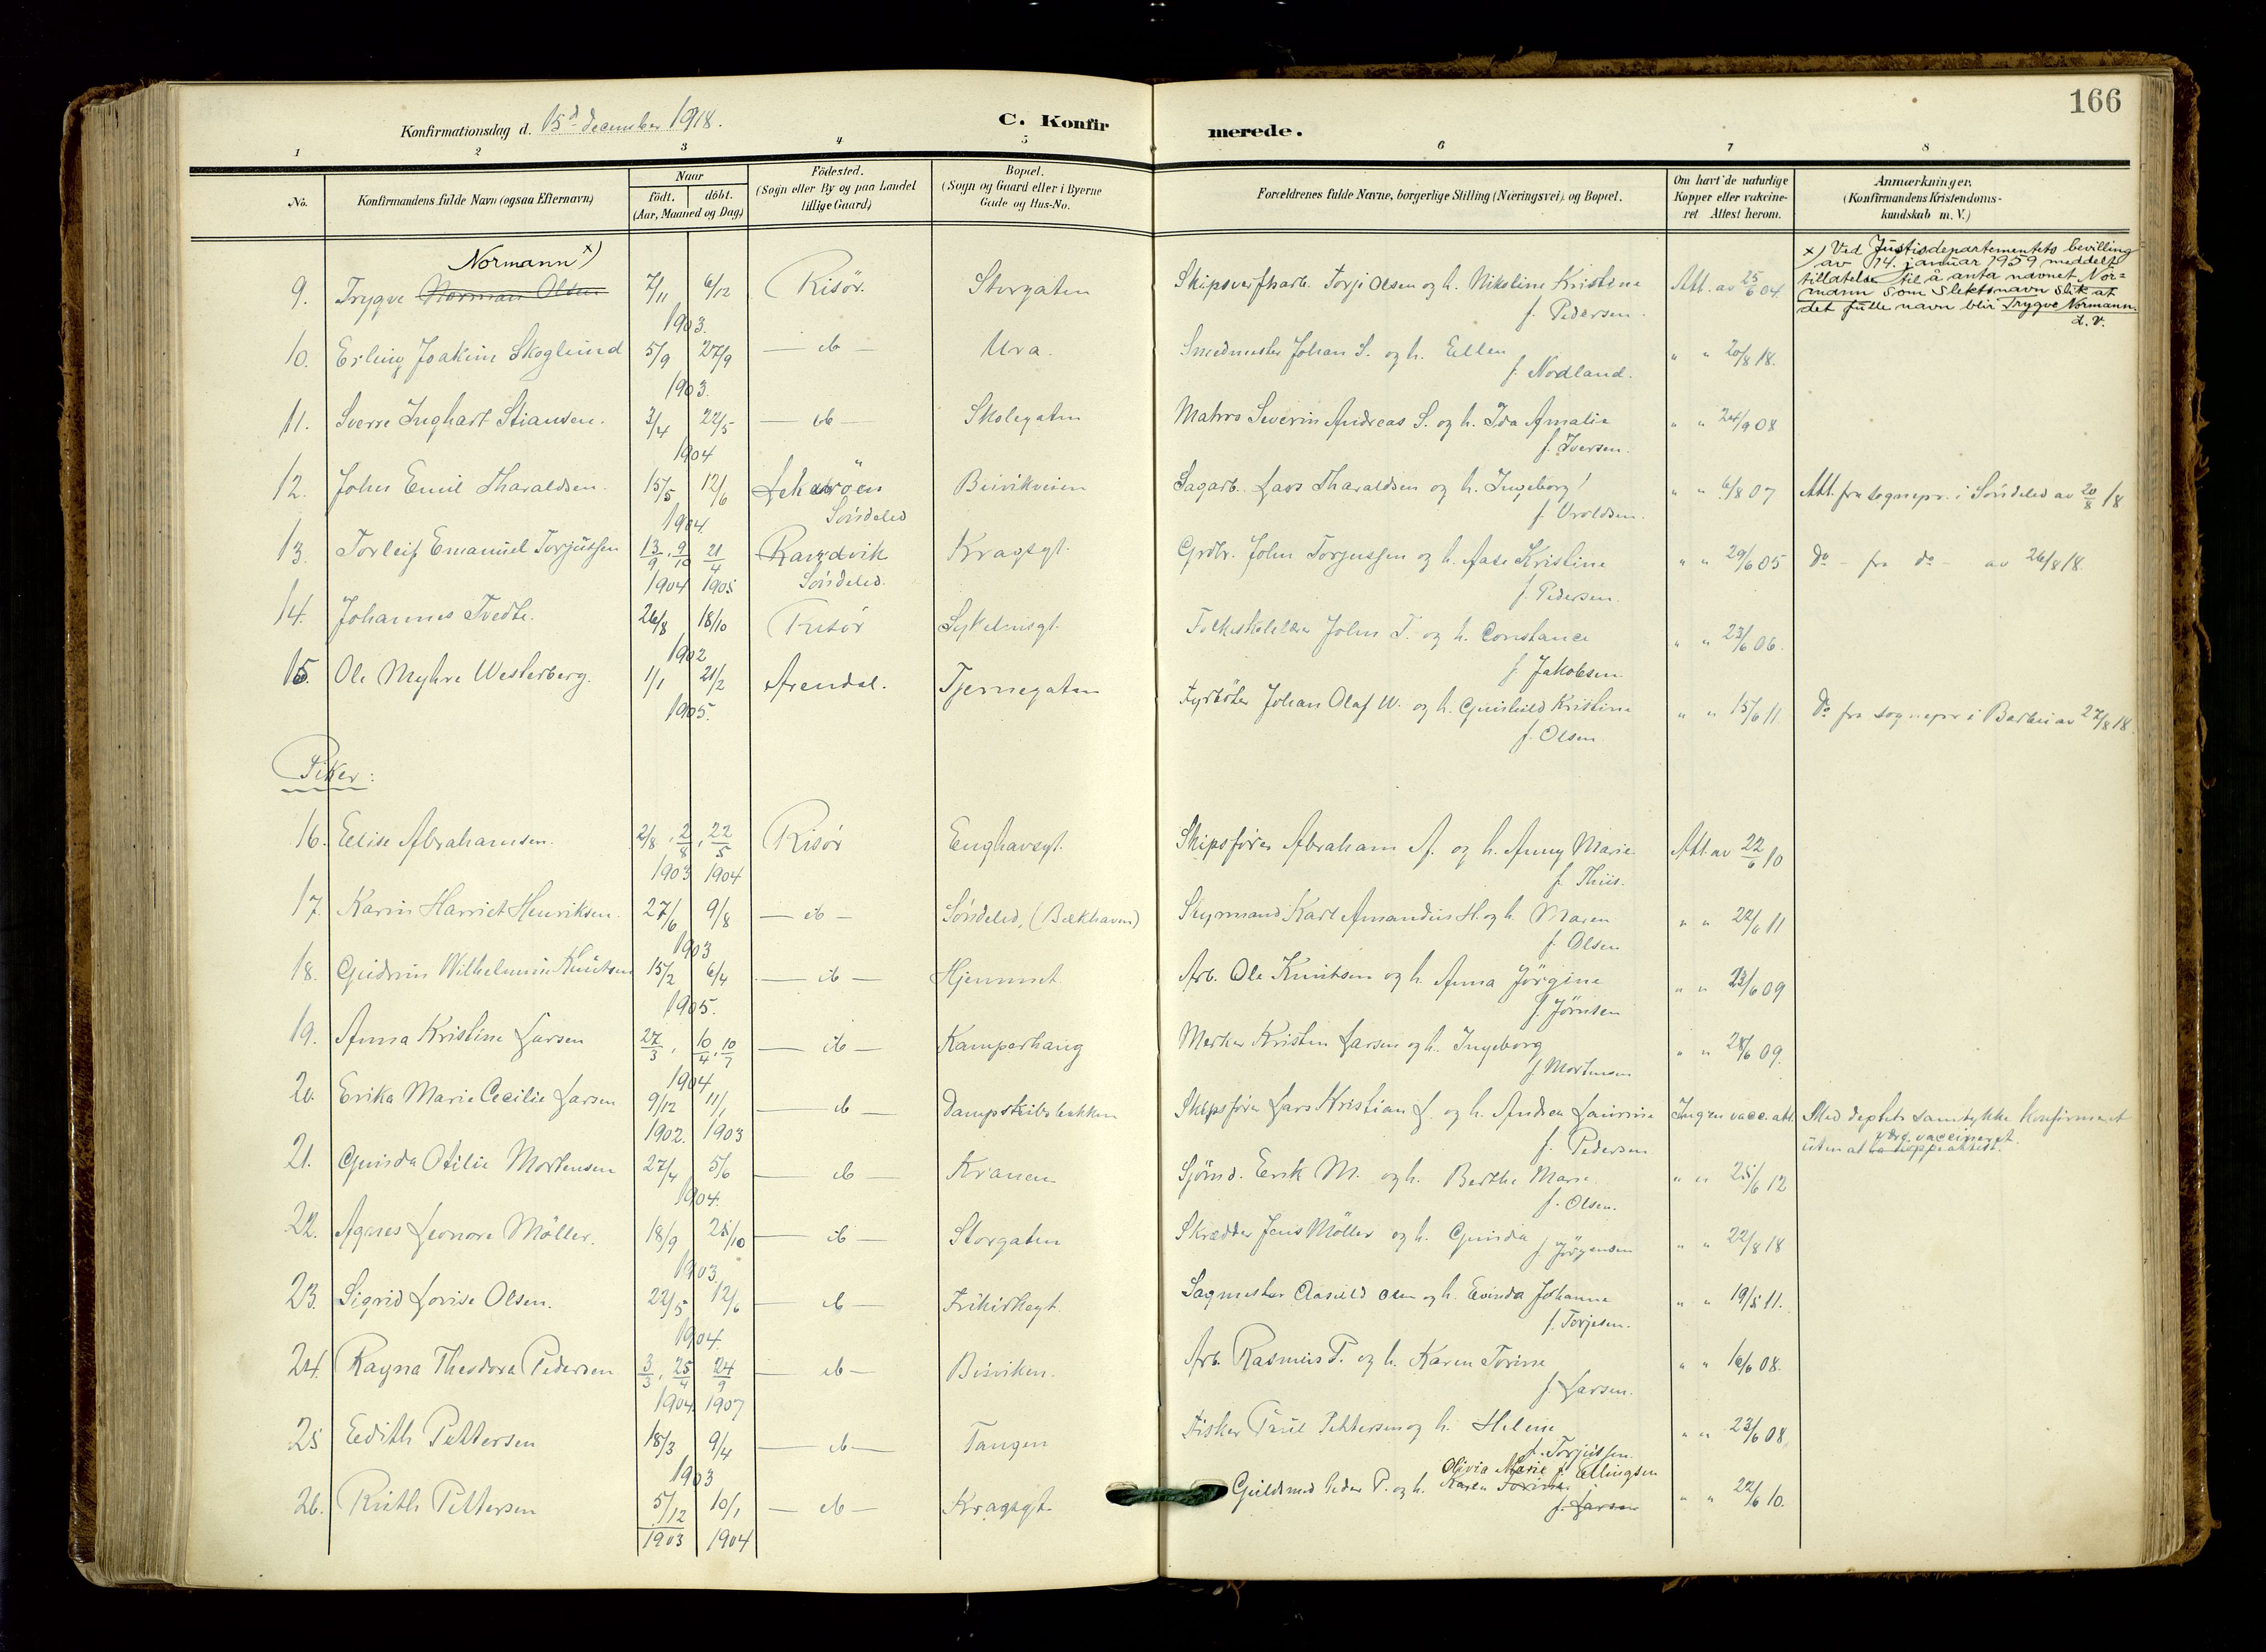 166
Konfirmationsdag d. 15d december 1918.
C. Konfirmerede.
1 2 3 4 5 6 7 8
No.
Konfirmandens fulde Navn (ogsaa Efternavn)
Naar
födt. döbt.
(Aar, Maaned og Dag)
Födested.
(Sogn eller By og paa Landet
tillige Gaard)
Bopæl.
(Sogn og Gaard eller i Byerne
Gade og Hus-No.
Forældrenes fulde Navne, borgerlige Stilling (Næringsvei) og Bopæl.
Om havt de naturlige
Kopper eller vakcine-
ret Attest herom.
Anmærkninger.
(Konfirmandens Kristendoms-
kundskab m. V.)
Normann x)
9. Trygve Norman Olsen 7/11 6/12 1903. Risør. Storgaten Skipsverftharb. Torje Olsen og h. Nikoline Kristine f. Pedersen. Att. av 25/6 04.
x) Ved Justisdepartementets bevilling
av 14. januar 1959 meddelt
tillatelse til å anta navnet Nor=
mann som slektsnavn slik at
det fulle navn blir Trygve Normann.
d. v.
10. Erling Joakim Skoglund 5/9 27/9 1903. — ib — Ura. Smedmester Johan S. og h. Ellen f. Nordland. " " 20/8 18.
11. Sverre Inghart Stiansen. 3/4 22/5 1904 — ib — Skolegaten Matros Severin Andreas S. og h. Ida Amalie f. Iversen. " " 24/9 08
12. John Emil Tharaldsen. 15/5 12/6 1904 Søndeled Buvikveien Sagarb. Lars Tharaldsen og h. Ingeborg f. Uvoldsen. " " 6/8 07 Att. fra sognepr. i Søndeled av 20/8 18
13. Torleif Emanuel Torjussen 13/9, 9/10 1904 21/4 1905 Randvik Søndeled. Kragsgt. Grdbr. John Torjussen og h. Aase Kristine f. Pedersen. " " 29/6 05 do – fra do – av 26/8 18.
14. Johannes Tvedte. 26/8 18/10 1902 Risør Sykehusgt. Folkeskolelærer John T. og h. Constance f. Jakobsen " " 23/6 06.
15. Ole Myhre Westerberg. 1/1 21/2 1905. Arendal. Tjernegaten Fyrbøter Johan Olaf W. og h. Gunhild Kristine f. Olsen. " " 15/6 11. do fra sognepr i Barbu av 27/8 18.
Piker:
16. Elise Abrahamsen. 2/8, 2/8 1903, 22/5 1904 Risør Enghavsgt. Skipsfører Abraham A. og h. Anny Marie f. Thiis. Att. av 22/6 10
17. Karin Harriet Henriksen. 27/6 9/8 1903 — ib — Søndeled, (Bækhaven) Styrmand Karl Amandus H. og h. Maren f. Olsen " " 22/6 11
18. Gudrun Wilhelmine Knutsen 15/2 6/4 1905. — ib — Hjemmet Arb. Ole Knutsen og h. Anna Jørgine f. Jørnsen " " 23/6 09
19. Anna Kristine Larsen 27/3, 10/4, 10/7 1904 — ib — Kamperhaug Merker Kristen Larsen og h. Ingeborg f. Mortensen " " 28/6 09.
20. Erika Marie Cecilie Larsen 9/12 1902. 11/1 1903 — ib — Dampskibsbakken Skipsfører Lars Kristian L. og h. Andrea Laurine f. Pedersen Ingen vacc. att. Med deptets samtykke konfirmeret
uten at være vaccineret.
21. Gunda Otilie Mortensen 27/4 5/6 1904. — ib — Kranen Sjømd. Enok M. og h. Berthe Marie f. Olsen. " " 25/6 12
22. Agnes Leonore Möller. 18/9 25/10 1903. — ib — Storgaten Skrædder Jens Möller og h. Gunda f. Jørgensen " " 22/8 18
23. Sigrid Lovise Olsen. 22/5 12/6 1904. — ib — Frikirkegt. Sagmester Aasuld Olsen og h. Evinda Johanne f. Torjesen. " " 19/5 11.
24. Ragna Theodora Pedersen 3/3, 25/4 1904. 24/9 1907 — ib — Buviken. Arb. Rasmus P. og h. Karen Torine f. Larsen. " " 16/6 08.
25 Edith Pettersen 18/3 9/4 1903 — ib — Tangen Fisker Paul Pettersen og h. Helene f. Torjussen. " " 23/6 08.
26. Ruth Pettersen 5/12 1903 10/1 1904 — ib — Kragsgt. Guldsmed Peder P. og h. Olivia Marie f. Ellingsen Karen Torine f. Larsen " " 22/6 10.